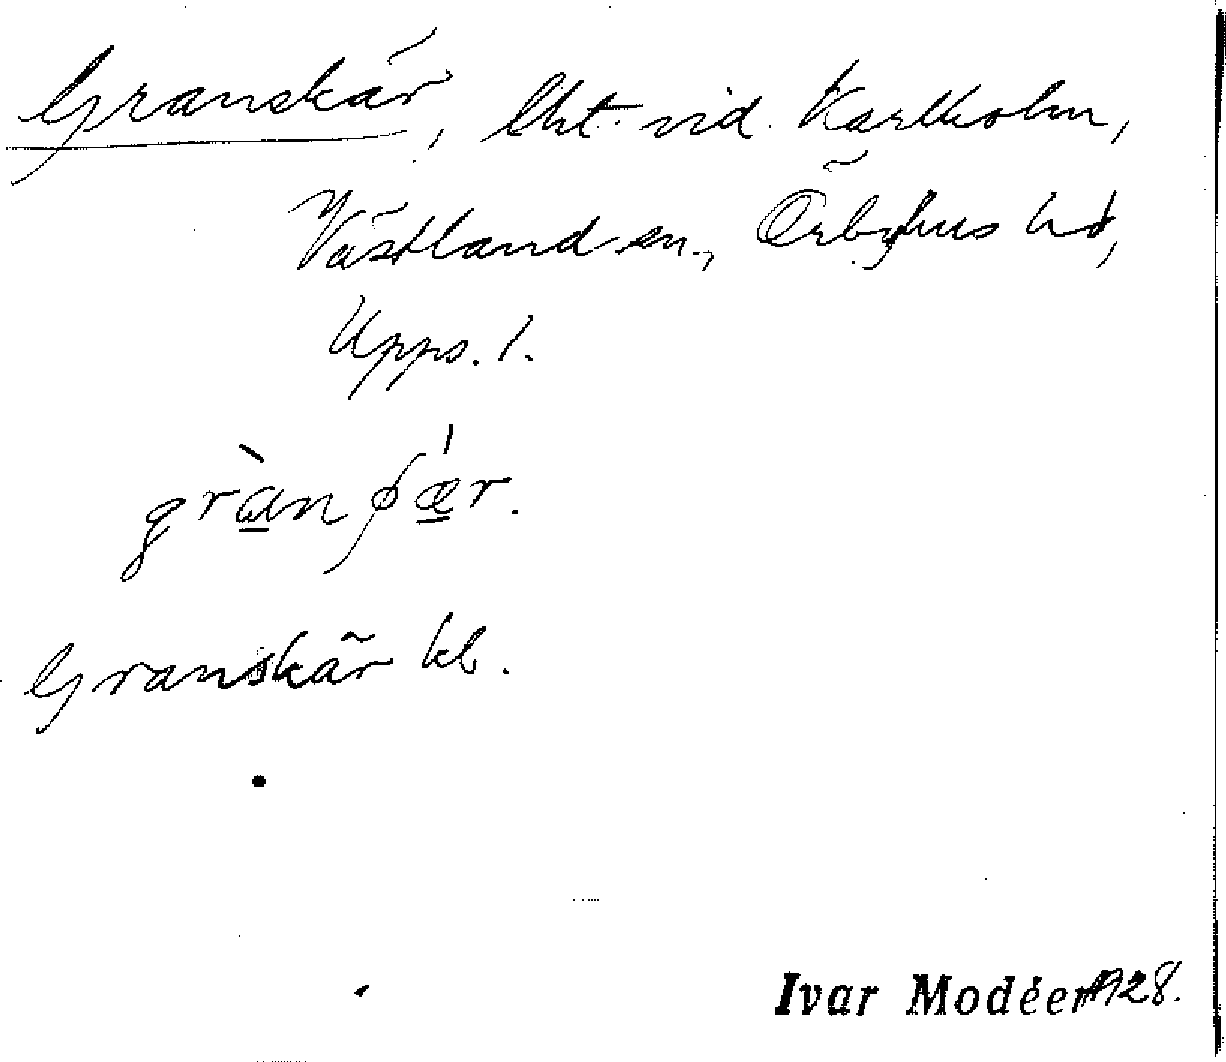 Granskär, Uht vid Karlholm,
Västland sn., Örbyhus hd,
Upps. l.
Granskär kb.
Ivar Modéer 1928.